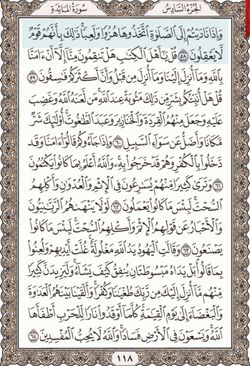 الجزء السادس
سورة المائدة
وَإِذَا نَادَيْتُمْ إِلَى ٱلصَّلَوٰةِ ٱتَّخَذُوهَا هُزُوًا وَلَعِبًا ذَٰلِكَ بِأَنَّهُمْ قَوْمٌ
لَّا يَعْقِلُونَ ٥٨ قُلْ يَٰٓأَهْلَ ٱلْكِتَٰبِ هَلْ تَنقِمُونَ مِنَّآ إِلَّآ أَنْ ءَامَنَّا
بِٱللَّهِ وَمَآ أُنزِلَ إِلَيْنَا وَمَآ أُنزِلَ مِن قَبْلُ وَأَنَّ أَكْثَرَكُمْ فَٰسِقُونَ ٥٩
قُلْ هَلْ أُنَبِّئُكُم بِشَرٍّ مِّن ذَٰلِكَ مَثُوبَةً عِندَ ٱللَّهِ مَن لَّعَنَهُ ٱللَّهُ وَغَضِبَ
عَلَيْهِ وَجَعَلَ مِنْهُمُ ٱلْقِرَدَةَ وَٱلْخَنَازِيرَ وَعَبَدَ ٱلطَّٰغُوتَ أُو۟لَٰٓئِكَ شَرٌّ
مَّكَانًا وَأَضَلُّ عَن سَوَآءِ ٱلسَّبِيلِ ٦٠ وَإِذَا جَآءُوكُمْ قَالُوٓا۟ ءَامَنَّا وَقَد
دَّخَلُوا۟ بِٱلْكُفْرِ وَهُمْ قَدْ خَرَجُوا۟ بِهِۦ وَٱللَّهُ أَعْلَمُ بِمَا كَانُوا۟ يَكْتُمُونَ
٦١ وَتَرَىٰ كَثِيرًا مِّنْهُمْ يُسَٰرِعُونَ فِى ٱلْإِثْمِ وَٱلْعُدْوَٰنِ وَأَكْلِهِمُ
ٱلسُّحْتَ لَبِئْسَ مَا كَانُوا۟ يَعْمَلُونَ ٦٢ لَوْلَا يَنْهَىٰهُمُ ٱلرَّبَّٰنِيُّونَ
وَٱلْأَحْبَارُ عَن قَوْلِهِمُ ٱلْإِثْمَ وَأَكْلِهِمُ ٱلسُّحْتَ لَبِئْسَ مَا كَانُوا۟
يَصْنَعُونَ ٦٣ وَقَالَتِ ٱلْيَهُودُ يَدُ ٱللَّهِ مَغْلُولَةٌ غُلَّتْ أَيْدِيهِمْ وَلُعِنُوا۟
بِمَا قَالُوا۟ بَلْ يَدَاهُ مَبْسُوطَتَانِ يُنفِقُ كَيْفَ يَشَآءُ وَلَيَزِيدَنَّ كَثِيرًا
مِّنْهُم مَّآ أُنزِلَ إِلَيْكَ مِن رَّبِّكَ طُغْيَٰنًا وَكُفْرًا وَأَلْقَيْنَا بَيْنَهُمُ ٱلْعَدَٰوَةَ
وَٱلْبَغْضَآءَ إِلَىٰ يَوْمِ ٱلْقِيَٰمَةِ كُلَّمَآ أَوْقَدُوا۟ نَارًا لِّلْحَرْبِ أَطْفَأَهَا
ٱللَّهُ وَيَسْعَوْنَ فِى ٱلْأَرْضِ فَسَادًا وَٱللَّهُ لَا يُحِبُّ ٱلْمُفْسِدِينَ ٦٤
١١٨